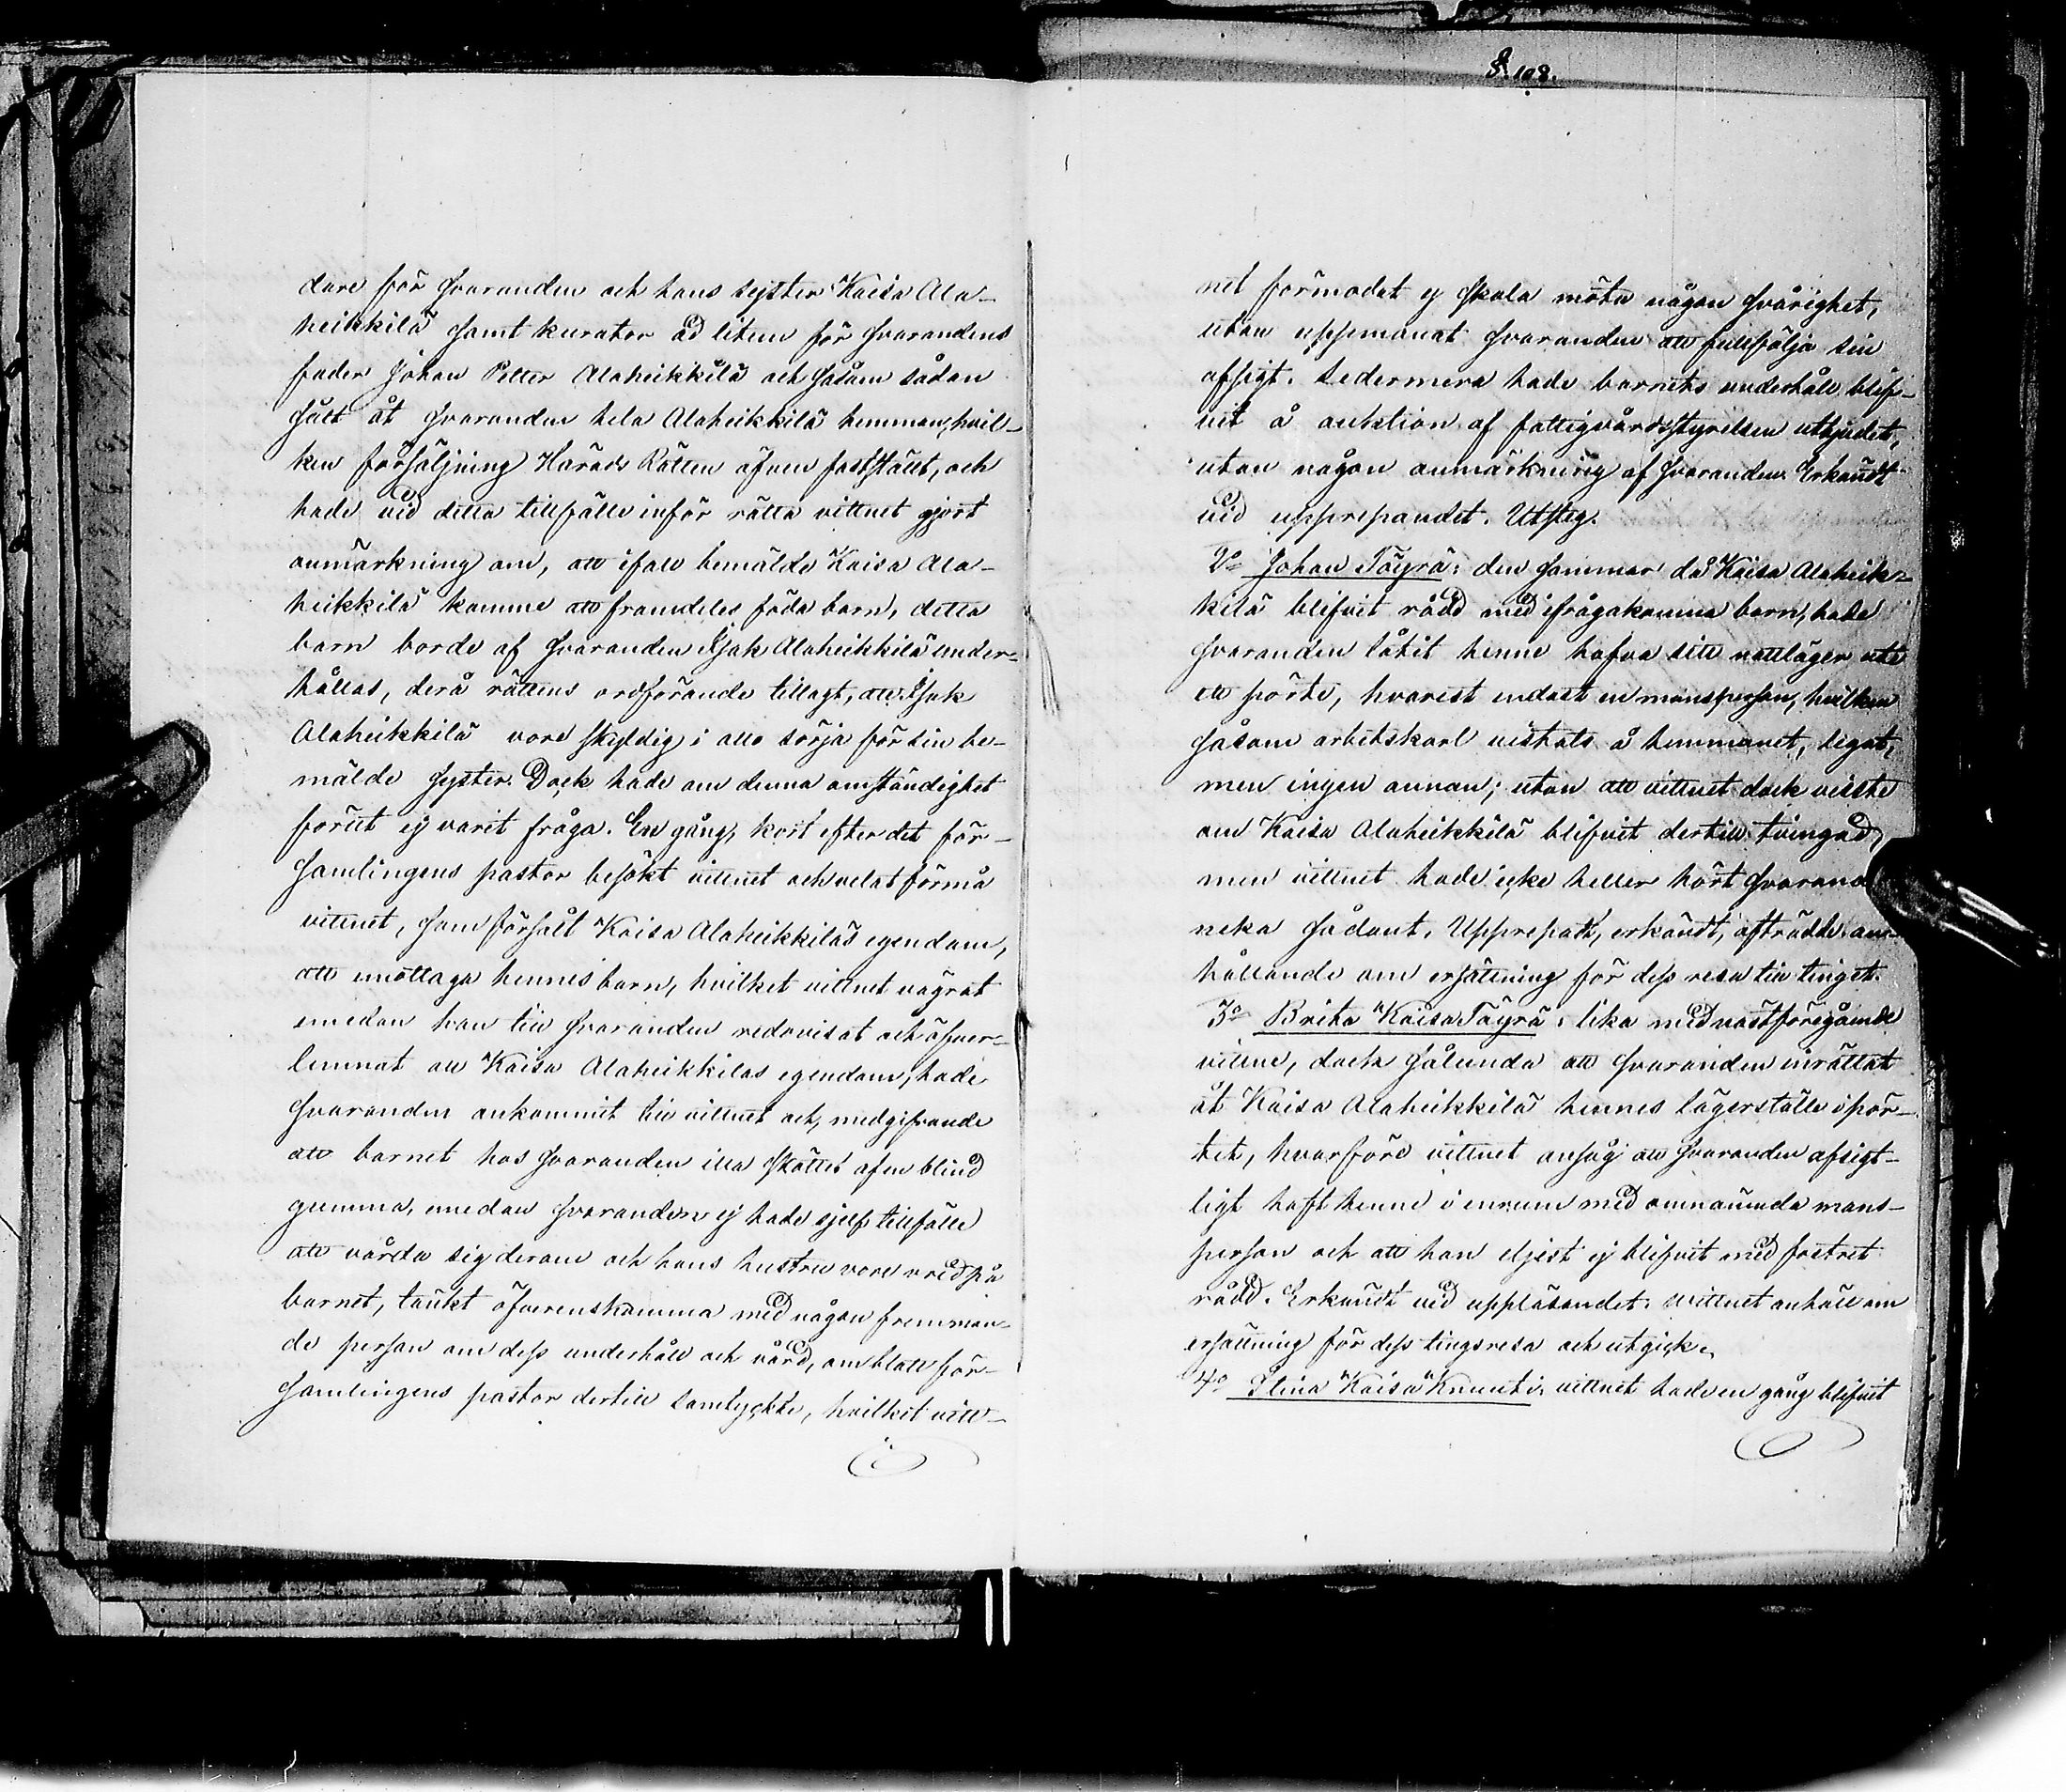 §. 108.
dare för svaranden och hans syster Kaisa Ala-
heikkilä samt kurator ad litem för svarandens
fader Johan Petter Alaheikkilä och såsom sådan
sålt åt svaranden hela Alaheikkilä hemman, hvil-
ken försäljning Härads Rätten äfven fastställt, och
hade vid detta tillfälle inför rätta vittnet gjort
anmärkning om, att ifall bemälde Kaisa Ala-
heikkilä komme att framdeles föda barn, detta
barn borde af svaranden Isak Alaheikkilä under-
hållas, derå rättens ordförande tillagt, att Isak
Alaheikkilä vore skyldig i allo sörja för sin be-
mälde syster. Dock hade om denna omständighet
förut ej varit fråga. En gång, kort efter det för-
samlingens pastor besökt vittnet och velat förmå
vittnet, som försålt Kaisa Alaheikkiläs egendom,
att emottaga hennes barn, hvilket vittnet vägrat
emedan han till svaranden redovisat och öfver-
lemnat all Kaisa Alaheikkiläs egendom, hade
svaranden ankommit till vittnet och, medgifvande
att barnet hos svaranden illa sköttes af en blind
gumma, emedan svaranden ej hade sjelf tillfälle
att vårda sig derom och hans hustru vore vred på
barnet, tänkt öfverenskomma med någon fremman-
de person om dess underhåll och vård, om blott för-
samlingens pastor dertill samtyckte, hvilket vitt-
net förmodat ej skola möta någon svårighet,
utan uppmanat svaranden att fullfölja sin
afsigt. Sedermera hade barnets underhåll blif-
vit å auktion af fattigvårdsstyrelsen utbjudet,
utan någon anmärkning af svaranden. Erkändt
vid upprepandet. Utsteg.
2o Johan Töyrä: den sommar då Kaisa Alaheik-
kilä blifvit rådd med ifrågakomna barn, hade
svaranden låtit henne hafva sitt nattläger uti
ett pörte, hvarest endast en mansperson, hvilken
såsom arbetskarl vistats å hemmanet, legat,
men ingen annan; utan att vittnet dock visste
om Kaisa Alaheikkilä blifvit dertill tvingad,
men vittnet hade icke heller hört svarand
neka sådant. Upprepadt, erkändt, afträdde an-
hållande om ersättning för dess resa till tinget.
3o Brita Kaisa Töyrä: lika med nästföregående
vittne, dock sålunda att svaranden inrättat
åt Kaisa Alaheikkilä hennes lägerställe i pör-
tet, hvarföre vittnet ansåg att svaranden afsigt-
ligt haft henne i enrum med omnämnda mans-
person och att hon eljest ej blifvit med fostret
rådd. Erkändt vid uppläsandet. Wittnet anhöll om
ersättning för dess tingsresa och utgick.
4o Elina Kaisa Knuuti: vittnet hade en gång blifvit